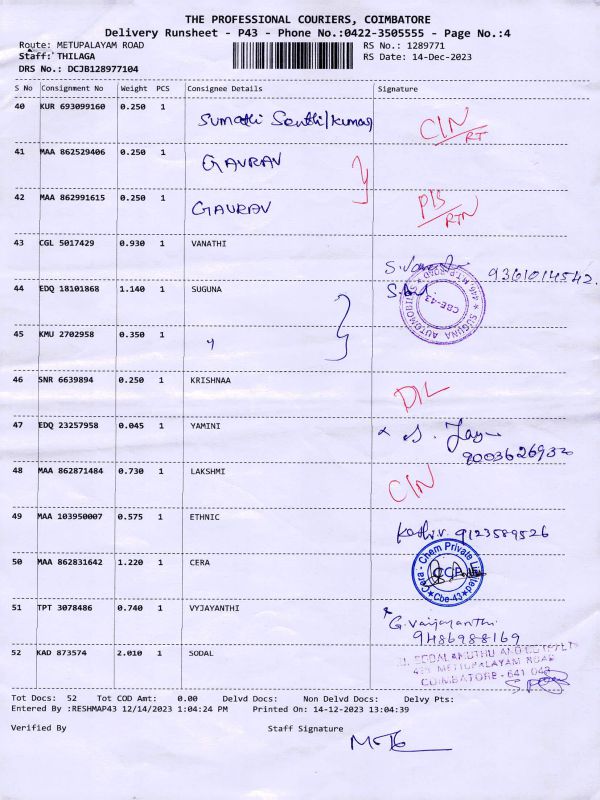 THE PROFESSIONAL COURIERS, COIMBATORE
Delivery Runsheet - P43 - Phone No.:0422-3505555 - Page No.:4
Route: METUPALAYAM ROAD RS No.: 1289771
Staff: THILAGA RS Date: 14-Dec-2023
DRS No.: DCJB128977104
S No Consignment No Weight PCS Consignee Details Signature
40 KUR 693099160 0.250 1 Sumathi Senthilkumar CIN/RT
41 MAA 862529406 0.250 1 GAURAV
42 MAA 862991615 0.250 1 GAURAV
43 CGL 5017429 0.930 1 VANATHI 9361014542.
44 EDQ 18101868 1.140 1 SUGUNA
SUGUNA AUTOMOBILES 446 M.T.P. ROAD CBE-43
45 KMU 2702958 0.350 1 "
46 SNR 6639894 0.250 1 KRISHNAA D/L
47 EDQ 23257958 0.045 1 YAMINI
48 MAA 862871484 0.730 1 LAKSHMI CIN
49 MAA 103950007 0.575 1 ETHNIC 9123589526
50 MAA 862831642 1.220 1 CERA
Cera - Chem Private Limited CCPL Cbe-43
51 TPT 3078486 0.740 1 VYJAYANTHI G. Vaijayanthi
9486988169
52 KAD 873574 2.010 1 SODAL
METUPALAYAM ROAD
COIMBATORE - 641 043
Tot Docs: 52 Tot COD Amt: 0.00 Delvd Docs: Non Delvd Docs: Delvy Pts:
Entered By :RESHMAP43 12/14/2023 1:04:24 PM Printed On: 14-12-2023 13:04:39
Verified By Staff Signature